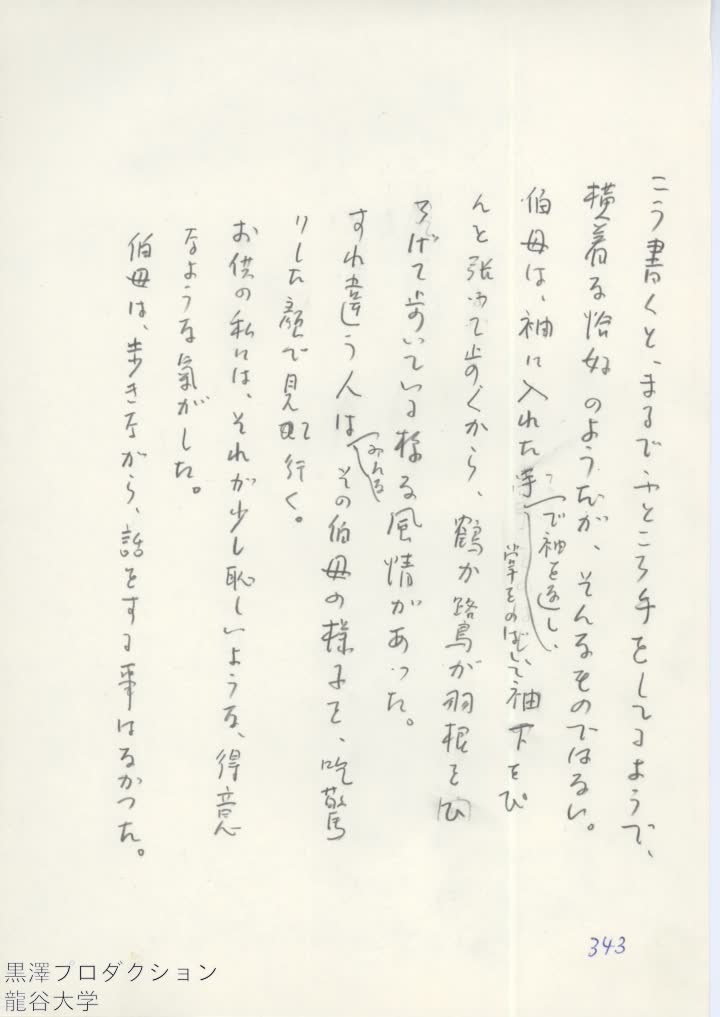 こう書くと、まるでふところ手をしてるようで、
横着な恰好のようだが、そんなものではない。
伯母は、袖に入れた手
で袖を返し、
掌をのばして袖下をぴ
んと張って歩くから、鶴か鷺が羽根をひ
ろげて歩いている様な風情があった。
すれ違う人は
みんな
その伯母の様子を、吃驚
りした顔で見て行く。
お供の私には、それが少し恥しいような、得意
なような氣がした。
伯母は、歩きながら、話をする事はなかった。
343
黒澤プロダクション
龍谷大学